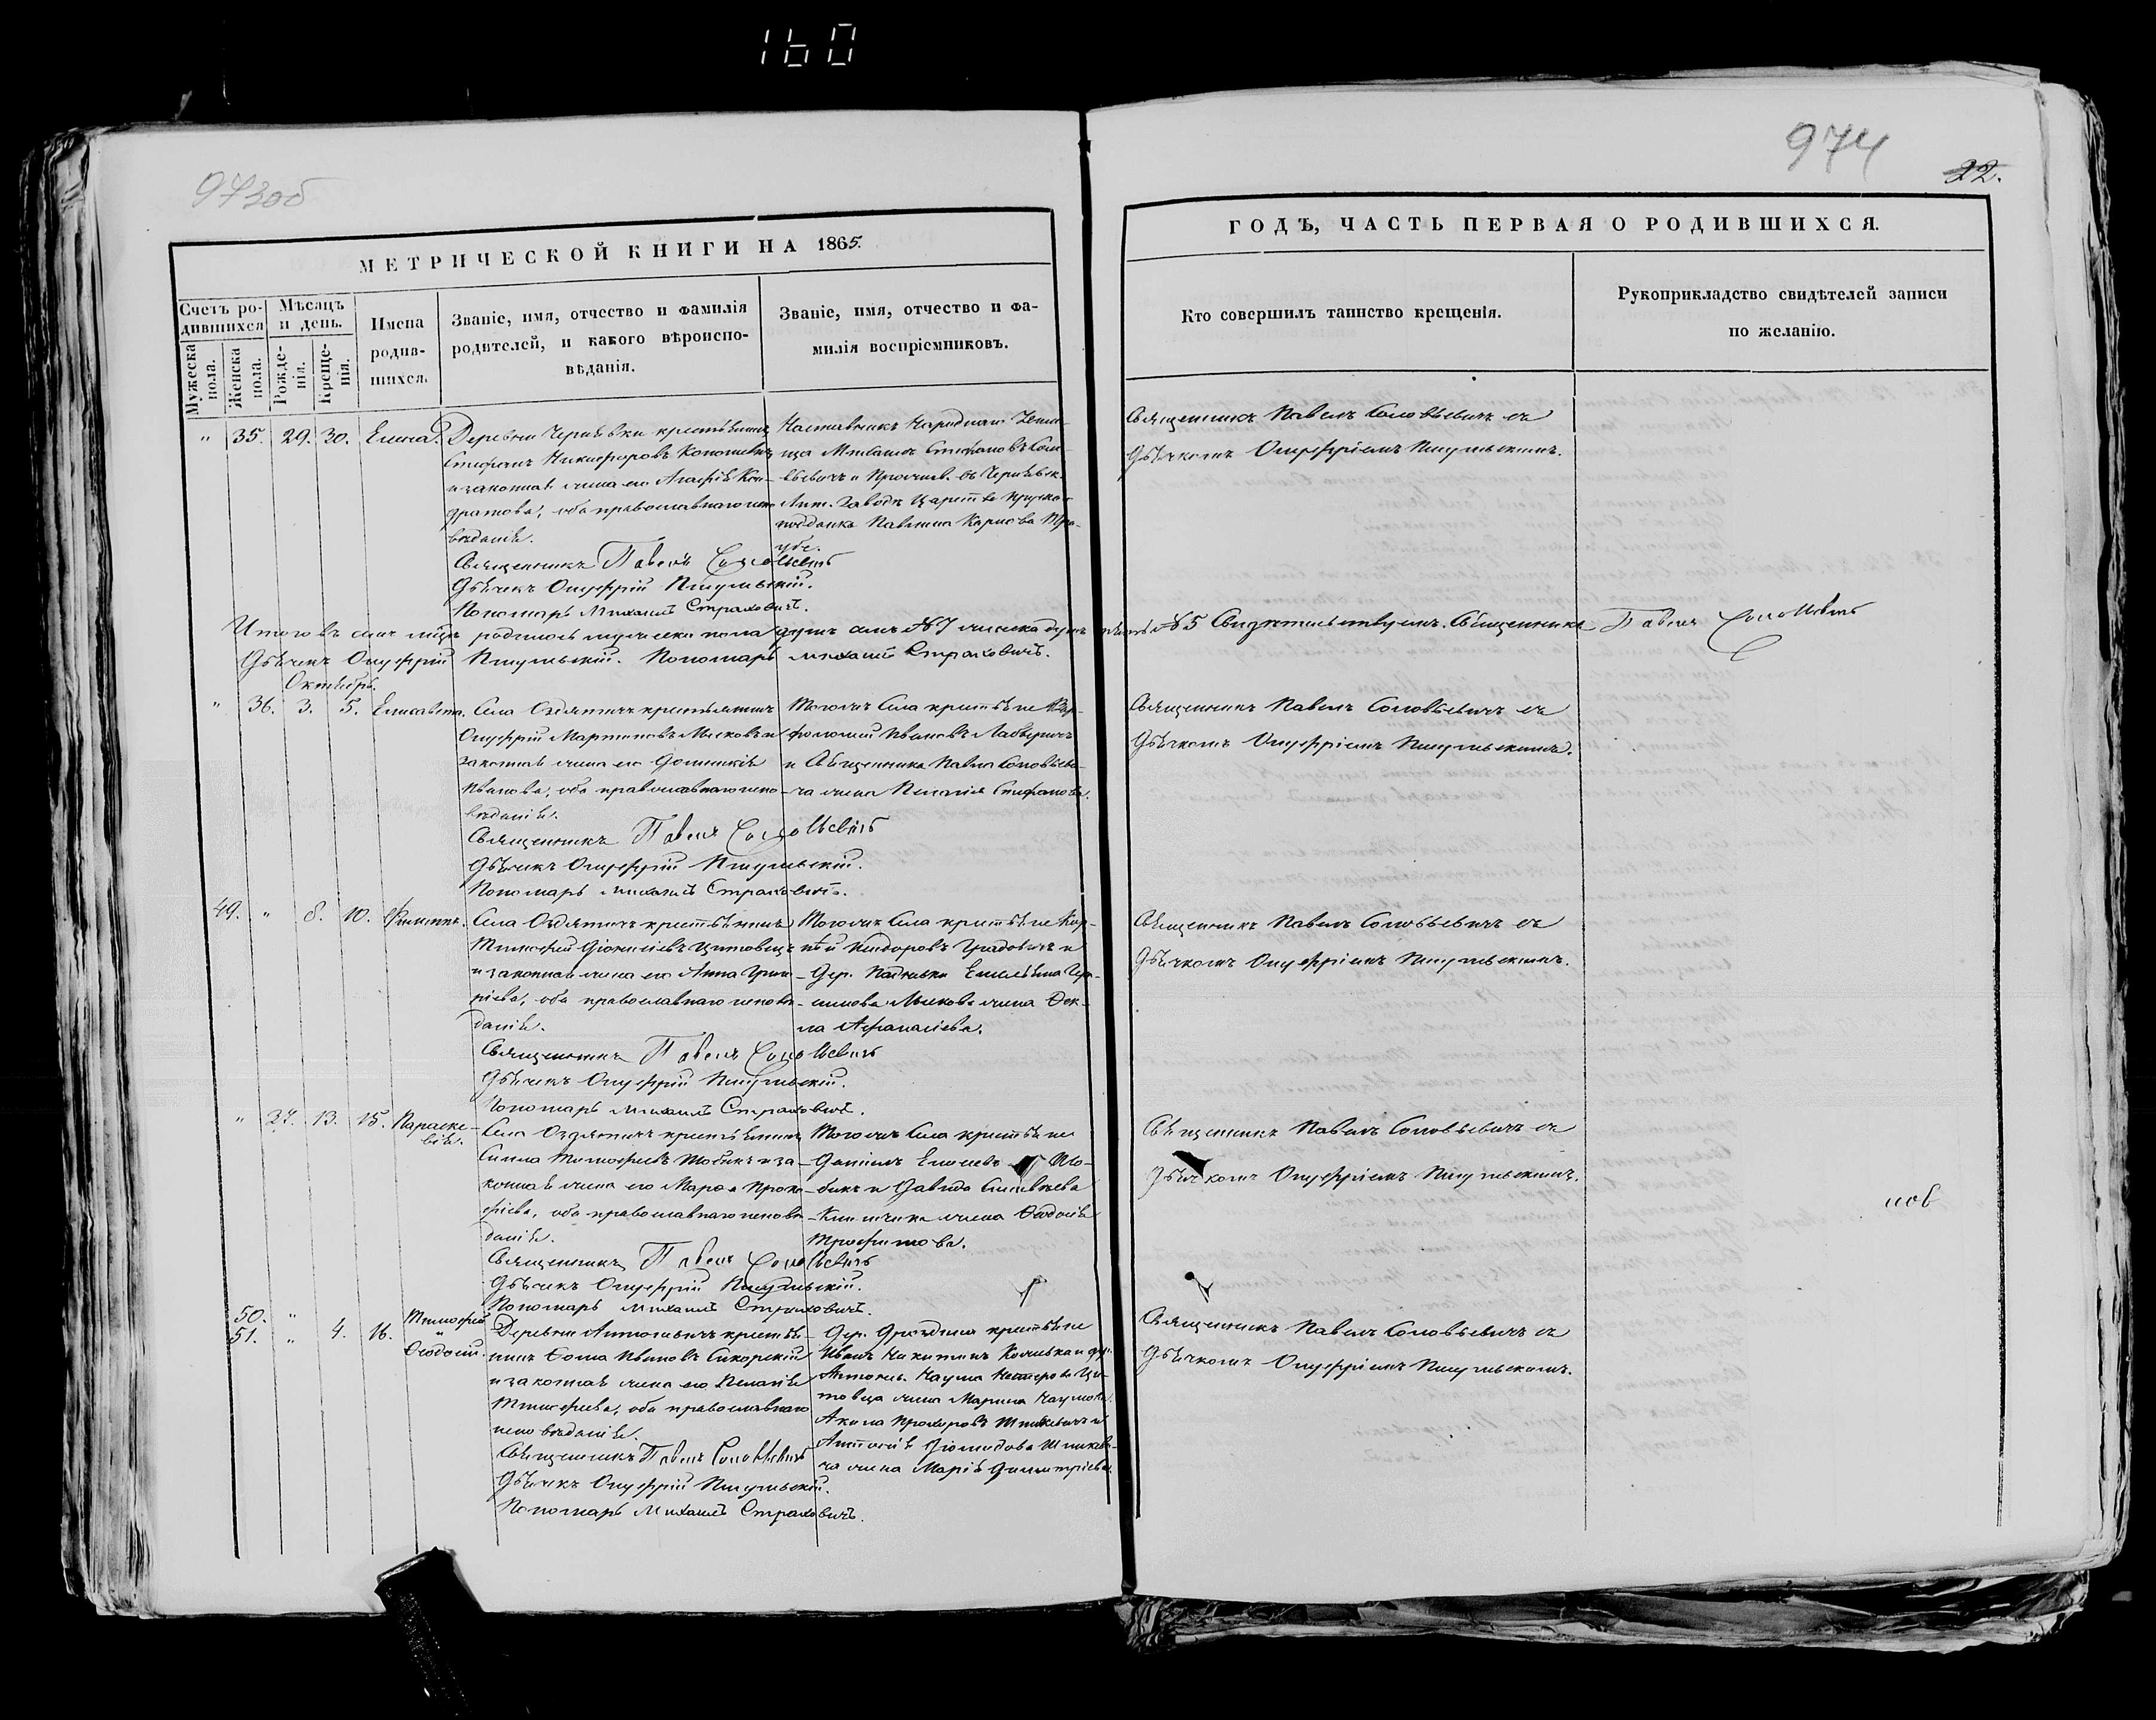 160
973об
974
22.
МЕТРИЧЕСКОЙ КНИГИ НА 1865.
ГОДЪ, ЧАСТЬ ПЕРВАЯ О РОДИВШИХСЯ.
Счетъ родившихся
Мужеска пола.
Женска пола.
Мѣсяцъ и день.
Рожденія.
Крещенія.
Имена родившихся.
Званіе, имя, отчество и фамилія
родителей, и какого вѣроиспо-
вѣданія.
Званіе, имя, отчество и фа-
милія воспріемниковъ.
Кто совершилъ таинство крещенія.
Рукоприкладство свидѣтелей записи
по желанію.
" 35. 29. 30. Елена.
Деревни Чернѣвки крестьянинъ
Стефанъ Никифоровъ
и законная жена его Агафія Кон-
дратова, оба православнаго испо-
вѣданія.
Священникъ Павелъ Соловьевичъ
Дьячекъ Онуфрій Пигулевскій.
Пономарь Михаилъ Страховичъ.
Наставникъ Народнаго
Михаилъ Стефановъ Соло-
вьевичъ и
Царства Прусскаго
Священникъ Павелъ Соловьевичъ съ
Дьячкомъ Онуфріемъ Пигулевскимъ.
Итого въ семъ мѣсяцѣ родилось мужеска пола душъ семь № 7 женска душъ пять № 5 Свидѣтельствуемъ. Священникъ Павелъ Соловьевичъ
Дьячекъ Онуфрій Пигулевскій. Пономарь Михаилъ Страховичъ.
Октябрь.
" 36. 3. 5. Елисавета.
Села Оздятичъ крестьянинъ
Онуфрій Мартиновъ
законная жена его Домникія
Иванова, оба православнаго испо-
вѣданія.
Священникъ Павелъ Соловьевичъ
Дьячекъ Онуфрій Пигулевскій.
Пономарь Михаилъ Страховичъ.
Тогожъ Села крестьяне Вар-
фоломей Ивановъ
и Священника Павла Соловьеви-
ча жена Пелагія Стефанова.
Священникъ Павелъ Соловьевичъ съ
Дьячкомъ Онуфріемъ Пигулевскимъ.
49. " 8. 10. Филиппъ.
Села Оздятичъ крестьянинъ
Тимофей Діонисіевъ Цитовецъ
и законная жена его Анна Григо-
ріева, оба православнаго исповѣ-
данія.
Священникъ Павелъ Соловьевичъ
Дьячекъ Онуфрій Пигулевскій.
Пономарь Михаилъ Страховичъ.
Тогожъ Села крестьяне Кор-
нѣй
Дер.
жена Ѳек-
ла Афанасіева.
Священникъ Павелъ Соловьевичъ съ
Дьячкомъ Онуфріемъ Пигулевскимъ.
" 37. 13. 15. Параске-
вія.
Села Оздятичъ крестьянинъ
Тимофеевъ и за-
конная жена его Марѳа Проко-
фіева, оба православнаго исповѣ-
данія.
Священникъ Павелъ Соловьевичъ
Дьячекъ Онуфрій Пигулевскій.
Пономарь Михаилъ Страховичъ.
Тогожъ Села крестьяне
Даніилъ
и Давида
жена Ѳеодосія
Трофимова.
Священникъ Павелъ Соловьевичъ съ
Дьячкомъ Онуфріемъ Пигулевскимъ.
нов
50. " 4. 16. Тимофей
51. " " Ѳеодосій.
Деревни крестья-
нинъ Ѳома Ивановъ Сикорскій
и законная жена его Пелагія
Тимофеева, оба православнаго
исповѣданія.
Священникъ Павелъ Соловьевичъ
Дьячекъ Онуфрій Пигулевскій.
Пономарь Михаилъ Страховичъ.
Дер. крестьяне
Иванъ Никитинъ
Наума Несторова Ци-
товца жена Марина Наумова.
Акила Прохоровъ
ча жена Марія Димитріева.
Священникъ Павелъ Соловьевичъ съ
Дьячкомъ Онуфріемъ Пигулевскимъ.